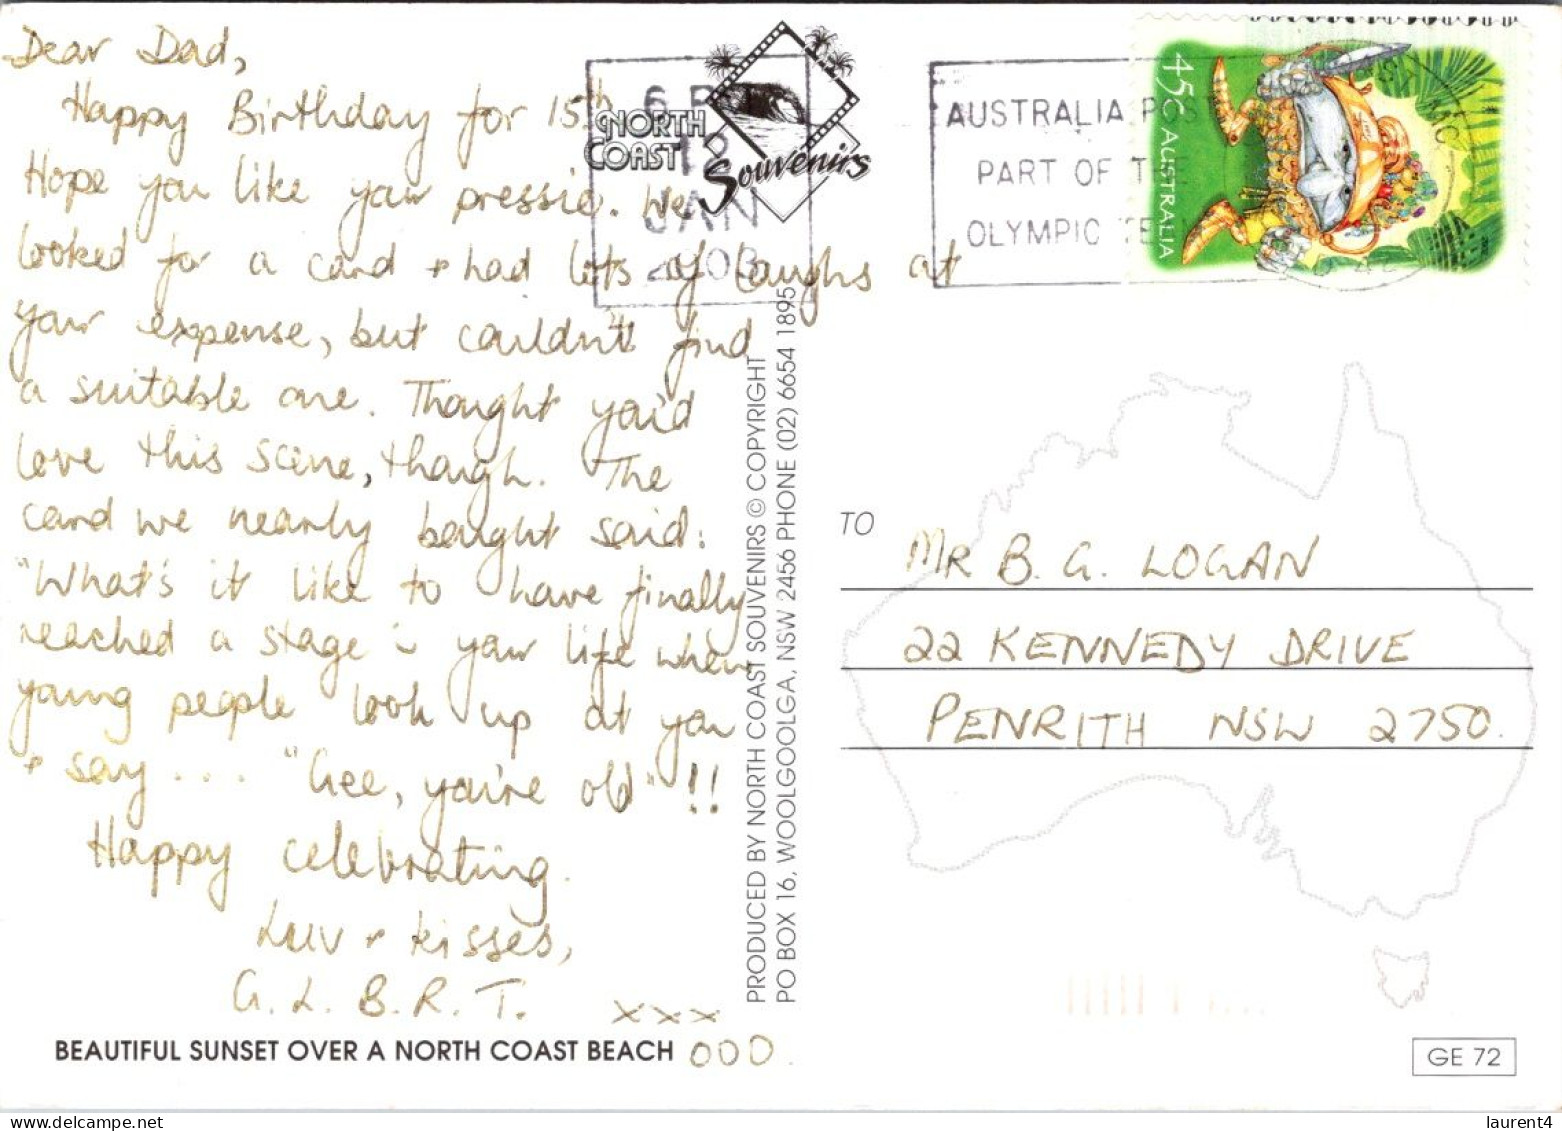 Dear Dad,
Happy Birthday for 15th
Hope you like your pressie. We
looked for a card + had lots of laughs at
your expense, but couldn't find
a suitable one. Thought you'd
love this scene, though. The
card we nearly bought said:
"What's it like to have finally
reached a stage in your life when
young people look up at you
+ say.... "Gee, you're old"!!
Happy celebrating.
Luv + kisses,
G. L. B. R. T. xxx
OOO
BEAUTIFUL SUNSET OVER A NORTH COAST BEACH
NORTH
COAST
Souvenirs
6 P
12
JAN
2003
PRODUCED BY NORTH COAST SOUVENIRS © COPYRIGHT
PO BOX 16, WOOLGOOLGA, NSW 2456 PHONE (02) 6654 1895
AUSTRALIA POST
PART OF THE
OLYMPIC TEAM
45c AUSTRALIA
TO
MR B. G. LOGAN
22 KENNEDY DRIVE
PENRITH NSW 2750.
GE 72
laurent4